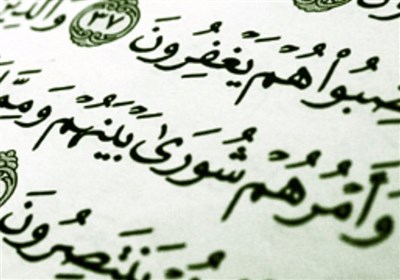 غَضِبُوا۟ هُمْ يَغْفِرُونَ ٣٧ وَالَّذِينَ
وَأَمْرُهُمْ شُورَىٰ بَيْنَهُمْ وَمِمَّا
يَنتَصِرُونَ